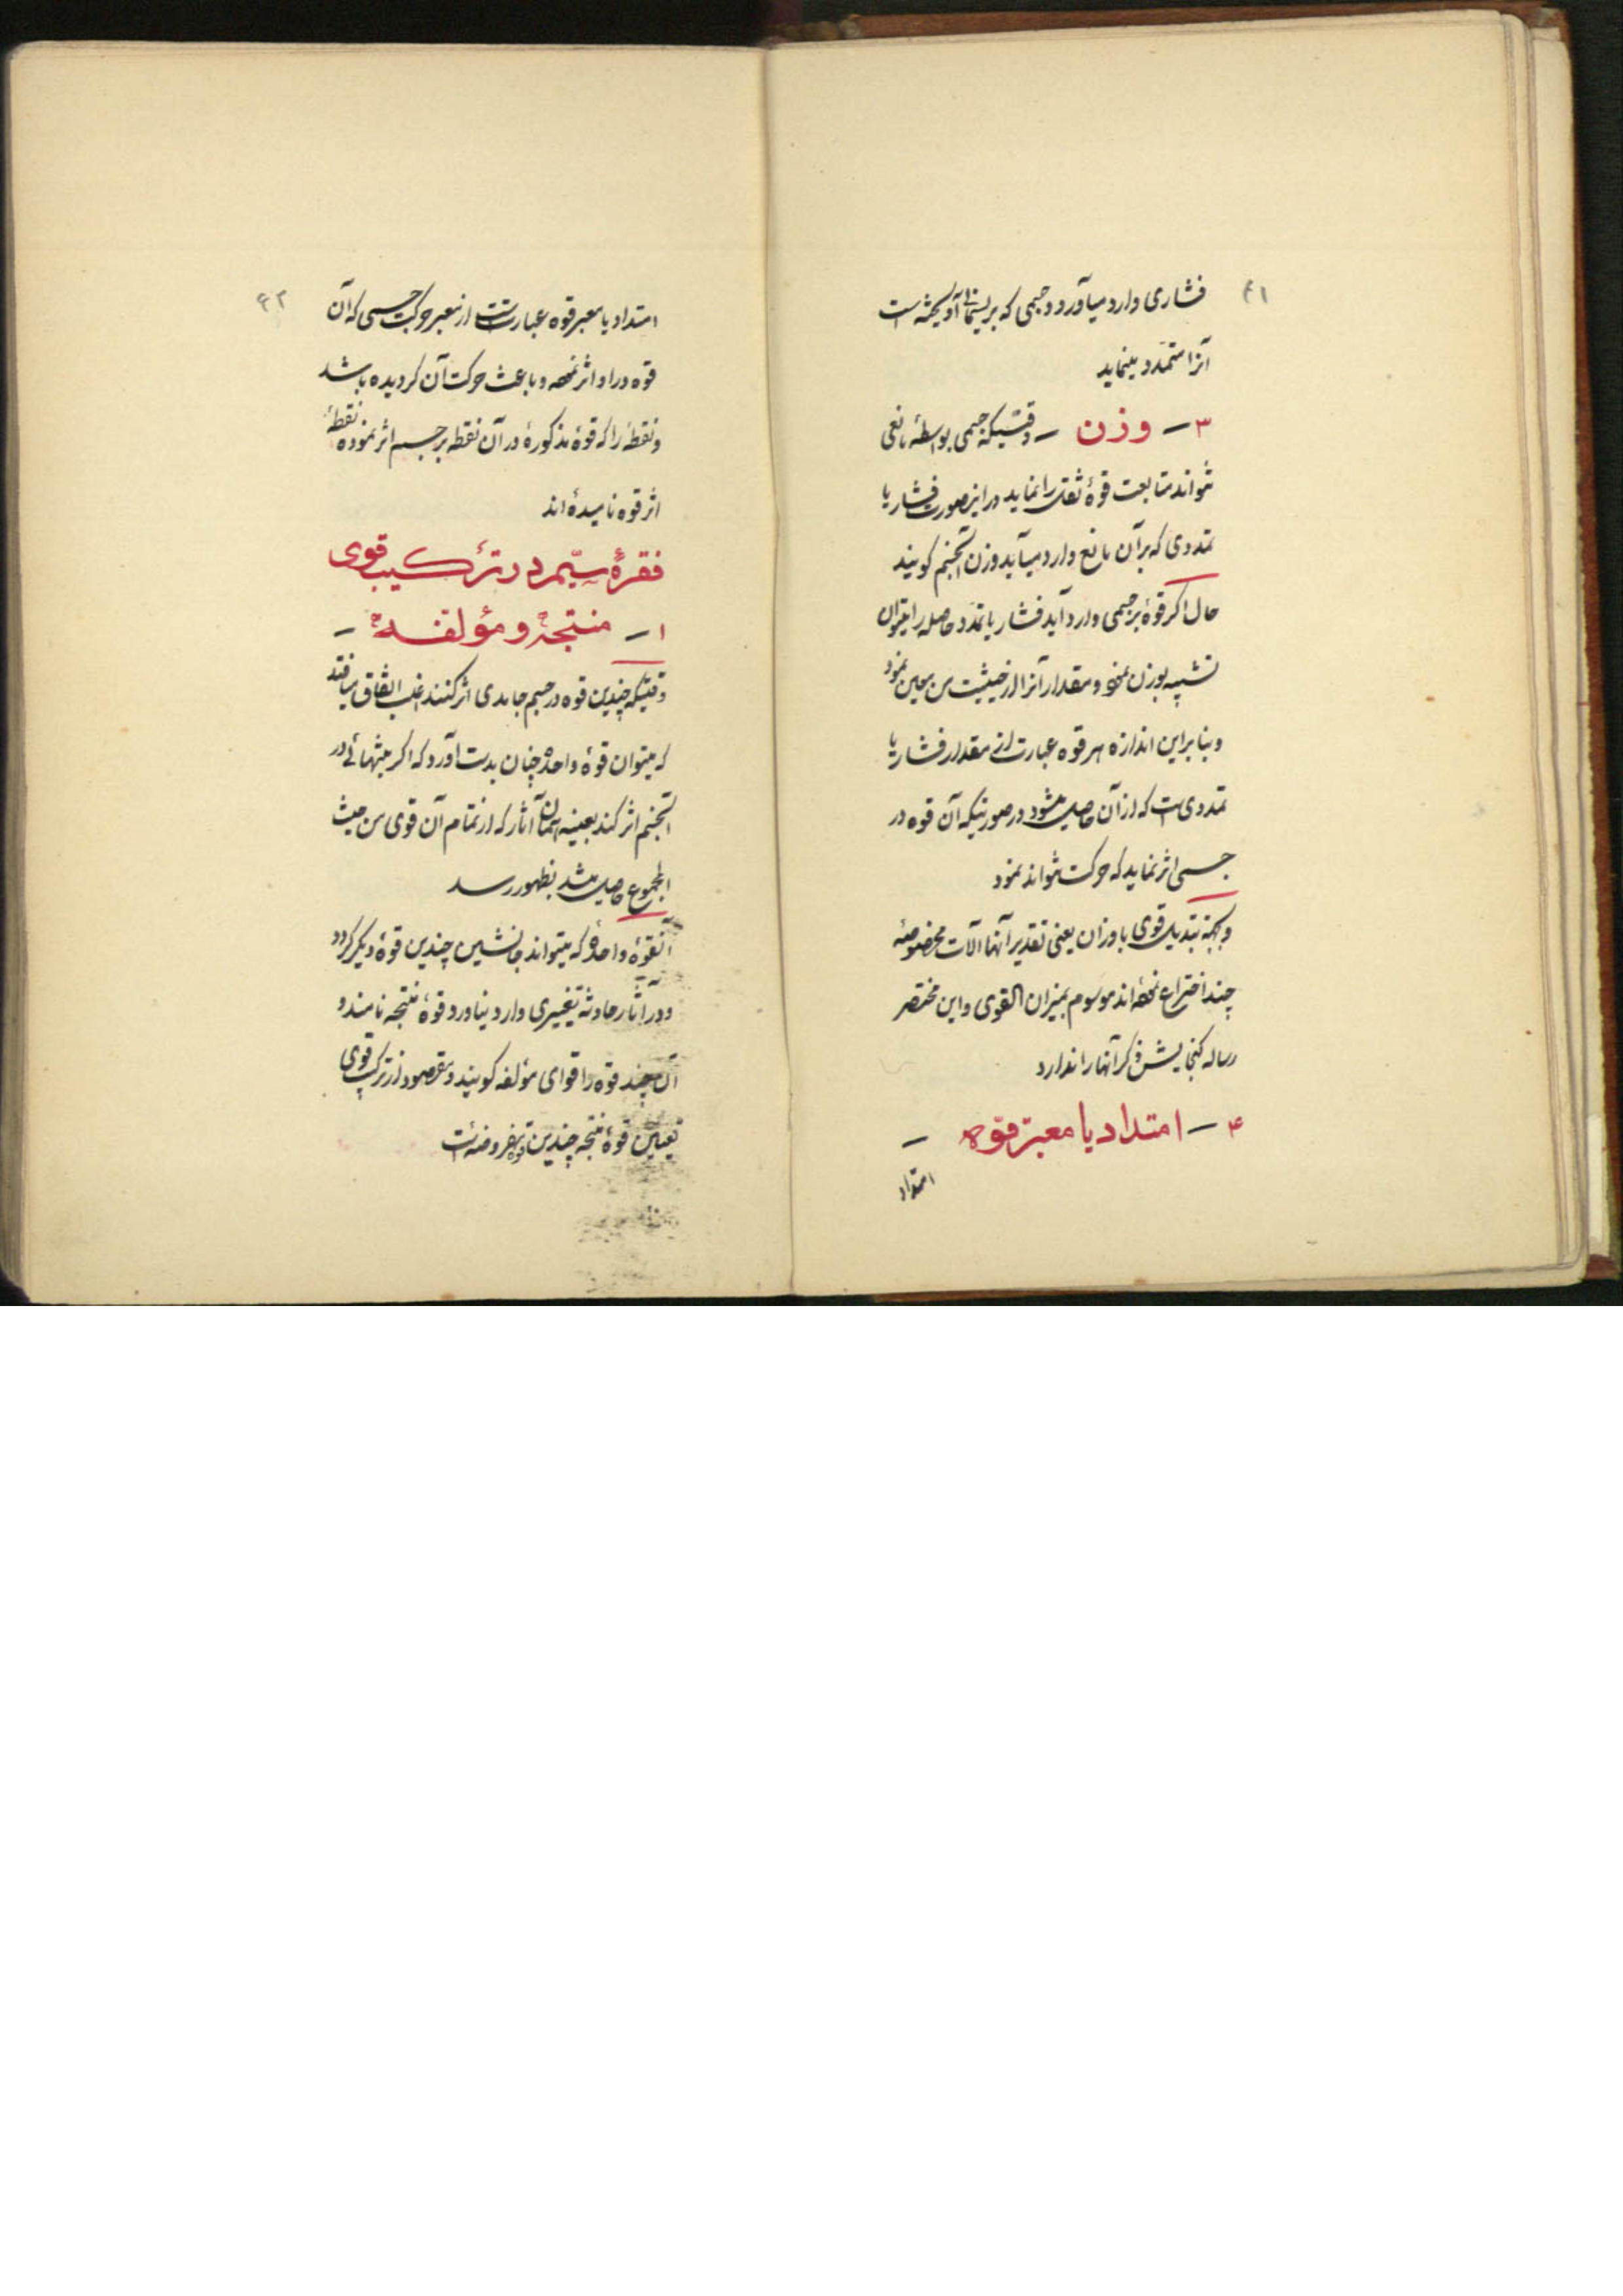 ۴۱
فشاری وارد میآورد و جسمی که بریسمانی آویخته است
آنرا متمدد مینماید
۳ــ وزن ــ وقتیکه جسمی بواسطهٔ مانعی
نتواند متابعت قوهٔ ثقل را نماید در اینصورت فشار یا
تمددی که برآن مانع وارد میآید وزن آنجسم کویند
حال اکر قوهٔ بر جسمی وارد آید فشار یا تمدد حاصله را میتوان
تشبیه بوزن نمود و مقدار آنرا از حیثیت من معین نمود
و بنابراین اندازه هر قوه عبارت از مقدار فشار یا
تمددی است که از آن حاصل میشود در صورتیکه آن قوه در
جسمی اثر نماید که حرکت نتواند نمود
و بجهة تبدیل قوی باوزان یعنی تقدیر آنها آلات مخصوصهٔ
چند اختراع نموده اند موسوم بمیزان القوی و این مختصر
رساله کنجایش ذکر آنها را ندارد
۴ــ امتداد یا معبر قوه ــ
امتداد
۴۲
امتداد یا معبر قوه عبارتست از معبر حرکت جسمی که آن
قوه در او اثر نموده و باعث حرکت آن کردیده باشد
و نقطهٔ را که قوهٔ مذکوره در آن نقطه بر جسم اثر نموده نقطهٔ
اثر قوه نامیده اند
فقرهٔ سیّم در ترکیب قوی
۱ــ منتجه و مؤلفه ــ
وقتیکه چندین قوه در جسم جامدی اثر کنند اغلب اتفاق میافتد
که میتوان قوهٔ واحدهٔ چنان بدست آورد که اکر بتنهائی در
آنجسم اثر کند بعینه همان آثار که از تمام آن قوی من حیث
المجموع حاصل میشد بظهور رسد
آنقوهٔ واحده که میتواند جانشین چندین قوهٔ دیکر کردد
و در آثار حادثه تغییری وارد نیاورد قوهٔ منتجه نامند و
آن چند قوه را قوای مؤلفه کویند و مقصود از ترکیب قوی
تعیین قوهٔ منتجه چندین قوهٔ مفروضه است